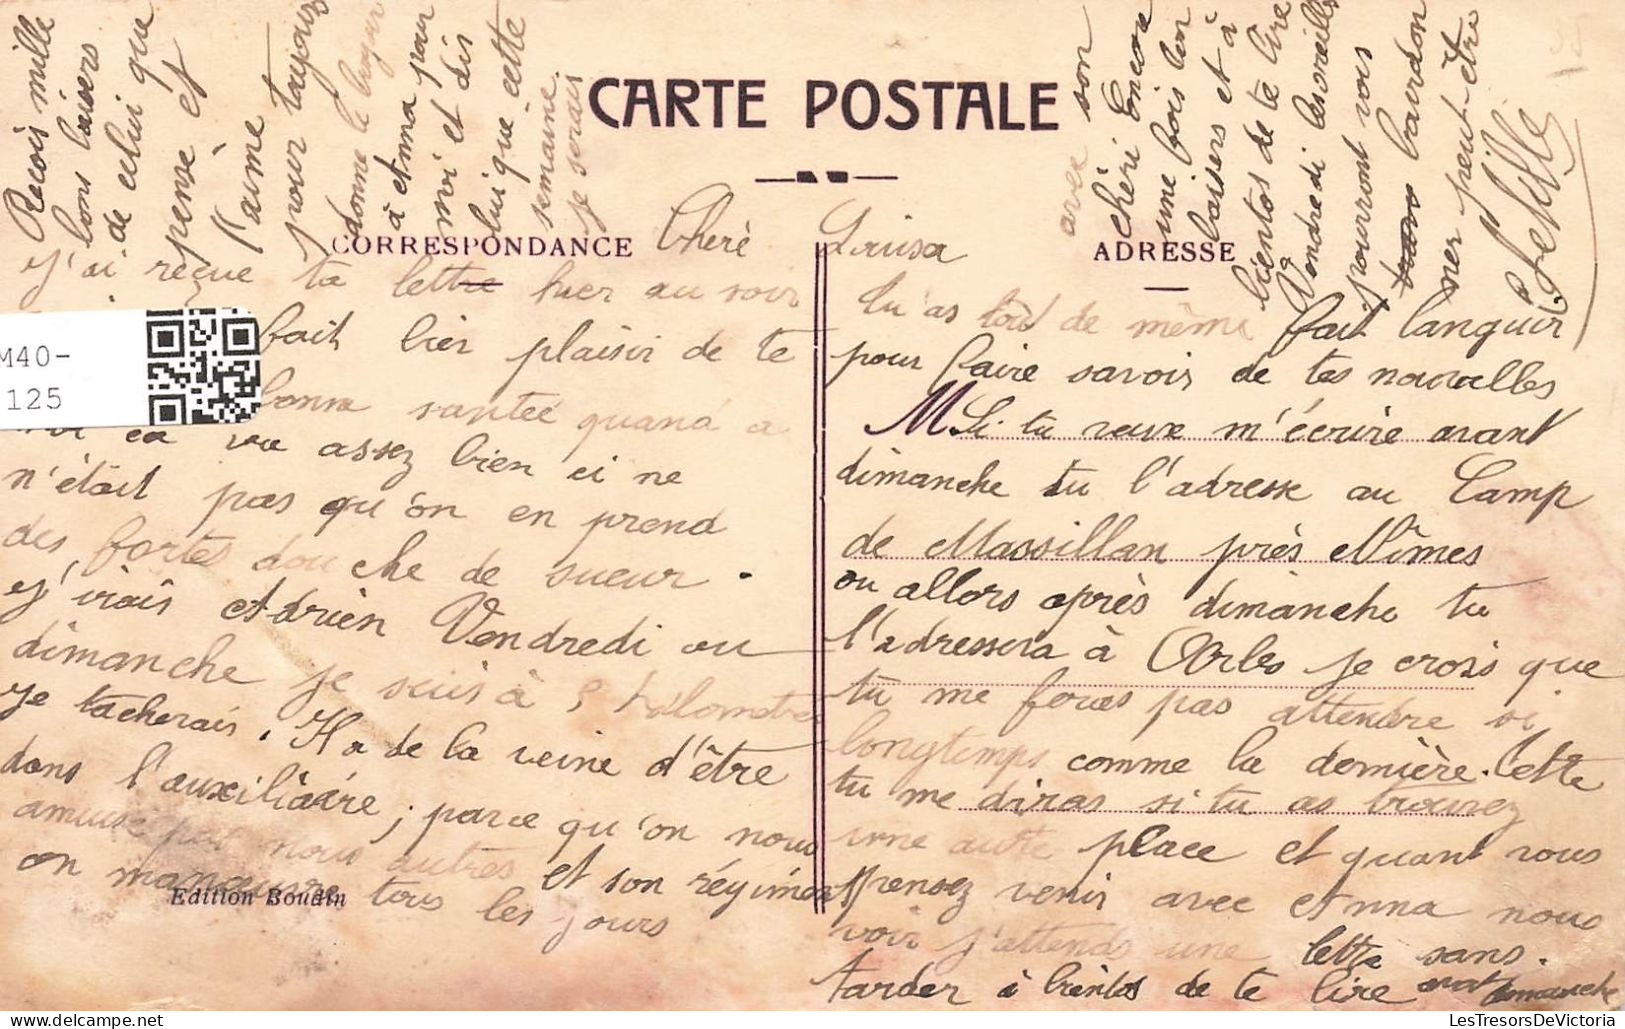 CARTE POSTALE
CORRESPONDANCE
ADRESSE
Cheré Louisa
j'ai reçue ta lettre hier au soir
fait bien plaisir de te
bonne santée quand a
moi ca va assez bien ci ne
n'était pas qu'on en prend
des fortes douche de sueur.
j'irais Adrien Vendredi ou
dimanche je suis à 5 kilometre
je tacherais. Il a de la veine d'être
dans l'auxiliaire; parce qu'on nous
amuse pas nous autres et son régiment
on manœuvre tous les jours
Edition Boudin
tu as tout de même fait languir
pour faire savoir de tes nouvelles
M Si tu veux m'écrire avant
dimanche tu l'adresse au Camp
de Massillan près Nîmes
ou allors après dimanche tu
l'adressera à Arles je crois que
tu me feras pas attendre si
longtemps comme la dernière. Cette
tu me diras si tu as trouvez
une autre place et quant vous
pensez venir avec Anna nous
voir j'attends une lettre sans.
tarder à bientos de te lire avant dimanche
Recois mille
bons baisers
de celui que
pense et
t'aime
pour toujours
donne le bonjour
à Anna pour
moi et dis
lui que cette
semaine
je serais
avec son
chéri Encore
une fois bon
baisers et à
bientos de te lire
Vendredi les oreilles
pourront vos
bourdon
ner peut-être